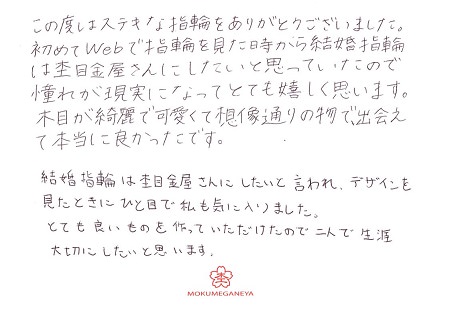 この度はステキな指輪をありがとうございました。
初めてWebで指輪を見た時から結婚指輪
は杢目金屋さんにしたいと思っていたので
憧れが現実になってとても嬉しく思います。
木目が綺麗で可愛くて想像通りの物で、出会え
て本当に良かったです。
結婚指輪は杢目金屋さんにしたいと言われ、デザインを
見たときにひと目で私も気に入りました。
とても良いものを作っていただけたので二人で生涯
大切にしたいと思います。
MOKUMEGANEYA